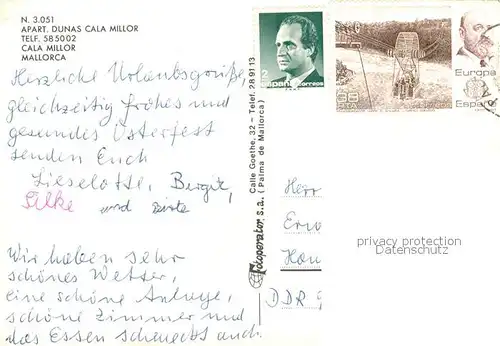 N. 3.051
APART. DUNAS CALA MILLOR
TELF. 585002
CALA MILLOR
MALLORCA
Herzliche Urlaubsgrüße,
gleichzeitig frohes und
gesundes Osterfest
senden Euch
Lieselotte, Birgit,
Silke und
Wir haben sehr
schönes Wetter,
eine schöne Anlage,
schöne Zimmer und
das Essen schmeckt auch.
Fotoperator, s.a.
Calle Goethe, 32 - Telef. 289113
(Palma de Mallorca)
España correos
Europa
España
Herr
Erw
DDR
privacy protection
Datenschutz